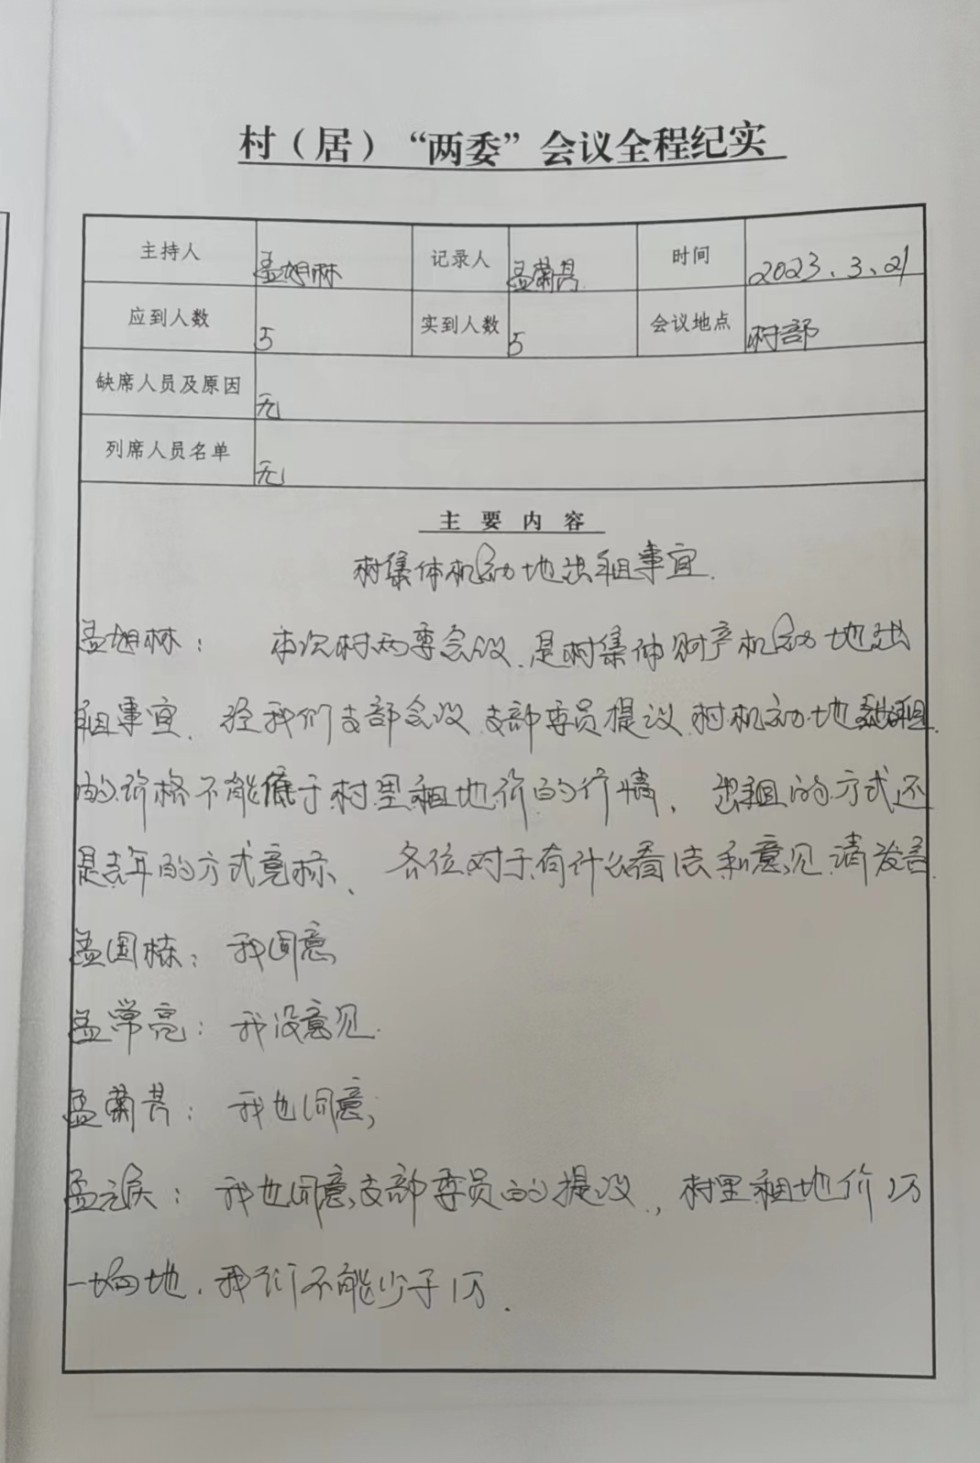 村（居）“两委”会议全程纪实
主持人 孟旭林 记录人 孟菊芳 时间 2023.3.21
应到人数 5 实到人数 5 会议地点 村部
缺席人员及原因 无
列席人员名单 无
主要内容
村集体机动地出租事宜.
孟旭林： 本次村两委会议.是村集体财产机动地出
租事宜.经我们支部会议.支部委员提议.村机动地出租
的价格不能低于村里租地价的行情. 出租的方式还
是去年的方式竞标、 各位对于有什么看法和意见.请发言.
孟国栋：我同意
孟常亮：我没意见.
孟菊芳：我也同意;
孟元：我也同意支部委员的提议.，村里租地价1万
一垧地.我们不能少于1万.